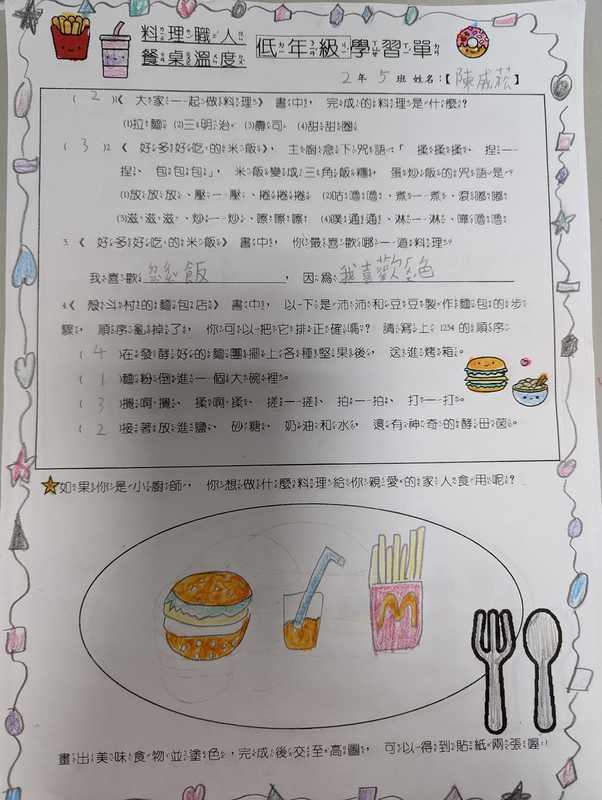 料理職人
餐桌溫度
低年級學習單
2年5班姓名:【陳威菘】
( 2 )1《大家一起做料理》書中,完成的料理是什麼?
(1)拉麵 (2)三明治 (3)壽司 (4)甜甜圈
( 3 )2《好多好吃的米飯》,主廚念下咒語「揉揉揉、捏一
捏、包包包」,米飯變成三角飯糰,蛋炒飯的咒語是?
(1)放放放、壓一壓、捲捲捲 (2)咕嚕嚕、煮一煮、滾嘟嘟
(3)滋滋滋、炒一炒、嚓嚓嚓 (4)噗通通、淋一淋、嘩嚕嚕
3.《好多好吃的米飯》書中,你最喜歡哪一道料理?
我喜歡 飯,因為 我喜歡 色
4.《殼斗村的麵包店》書中,以下是沛沛和豆豆製作麵包的步
驟,順序亂掉了,你可以把它排正確嗎?請寫上1234的順序。
( 4 )在發酵好的麵團擺上各種堅果後,送進烤箱。
( 1 )麵粉倒進一個大碗裡。
( 3 )攪啊攪、揉啊揉、搓一搓、拍一拍、打一打。
( 2 )接著放進鹽、砂糖、奶油和水,還有神奇的酵母菌。
如果你是小廚師,你想做什麼料理給你親愛的家人食用呢?
M
畫出美味食物並塗色,完成後交至高圖,可以得到貼紙兩張喔!